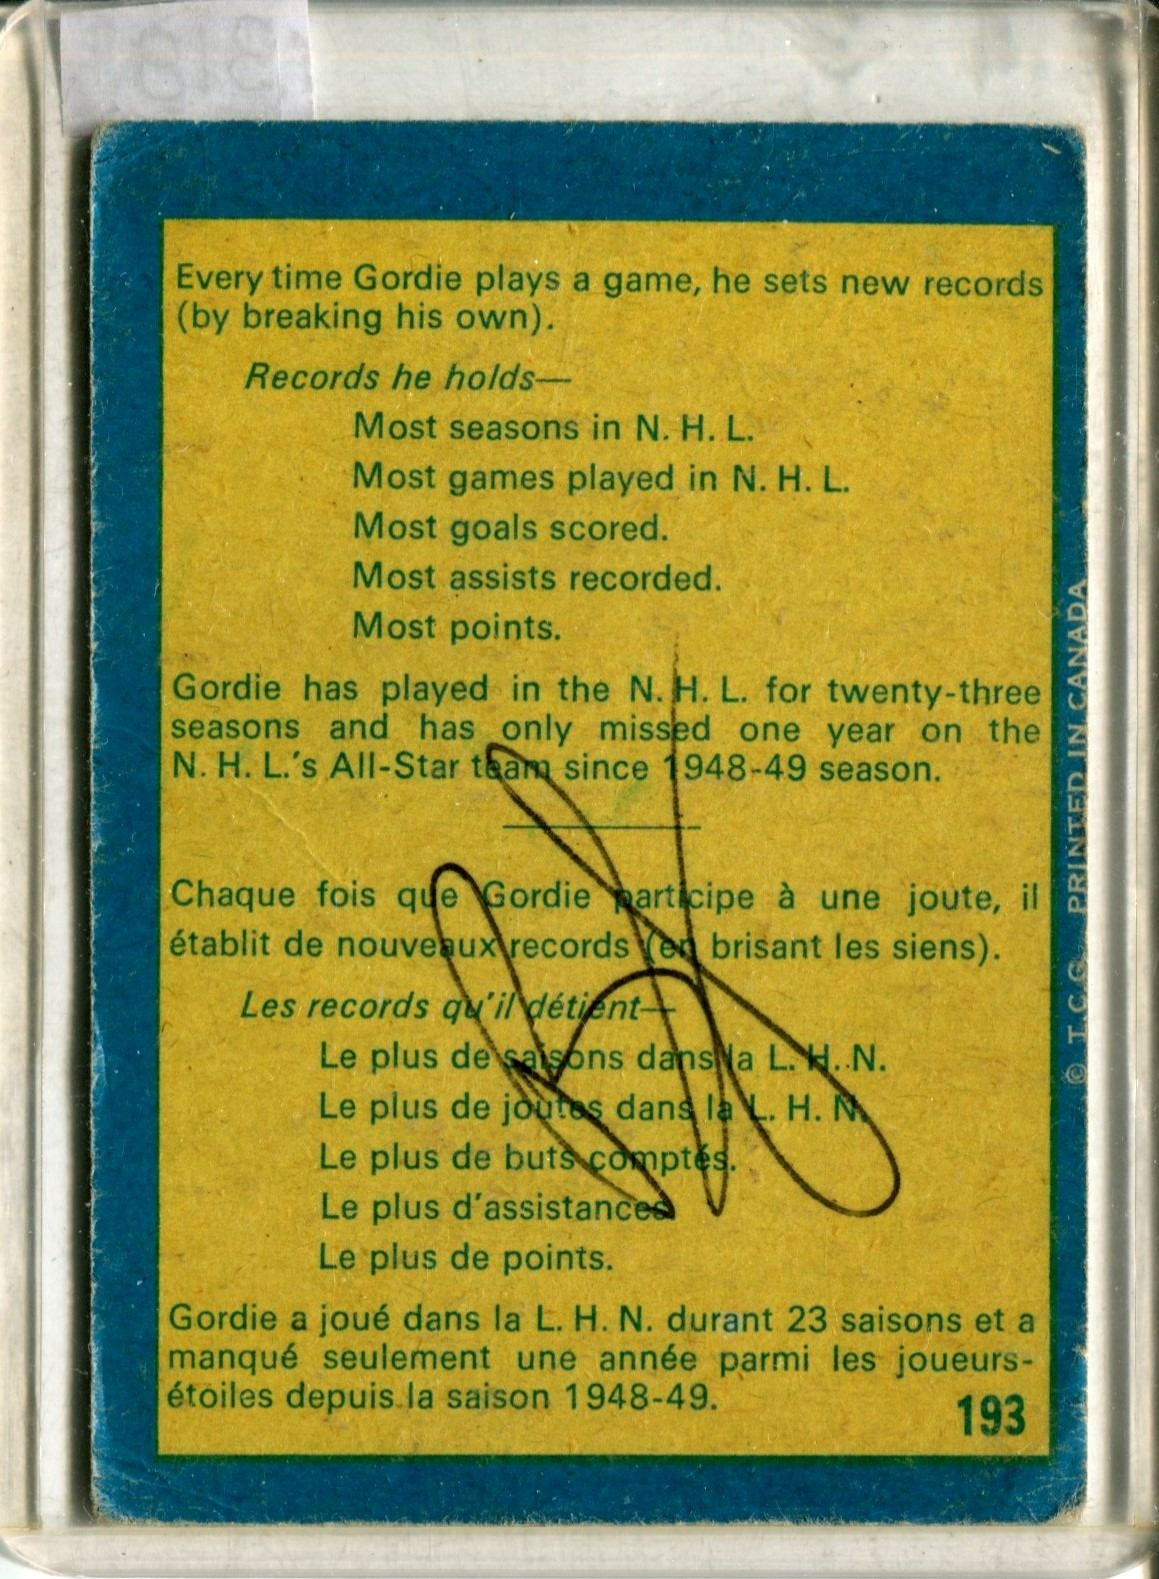 Every time Gordie plays a game, he sets new records
(by breaking his own).
Records he holds—
Most seasons in N. H. L.
Most games played in N. H. L.
Most goals scored.
Most assists recorded.
Most points.
Gordie has played in the N. H. L. for twenty-three
seasons and has only missed one year on the
N. H. L.'s All-Star team since 1948-49 season.
Chaque fois que Gordie participe à une joute, il
établit de nouveaux records (en brisant les siens).
Les records qu'il détient—
Le plus de saisons dans la L. H. N.
Le plus de joutes dans la L. H. N.
Le plus de buts comptés.
Le plus d'assistances
Le plus de points.
Gordie a joué dans la L. H. N. durant 23 saisons et a
manqué seulement une année parmi les joueurs-
étoiles depuis la saison 1948-49.
193
© T.C.G. PRINTED IN CANADA